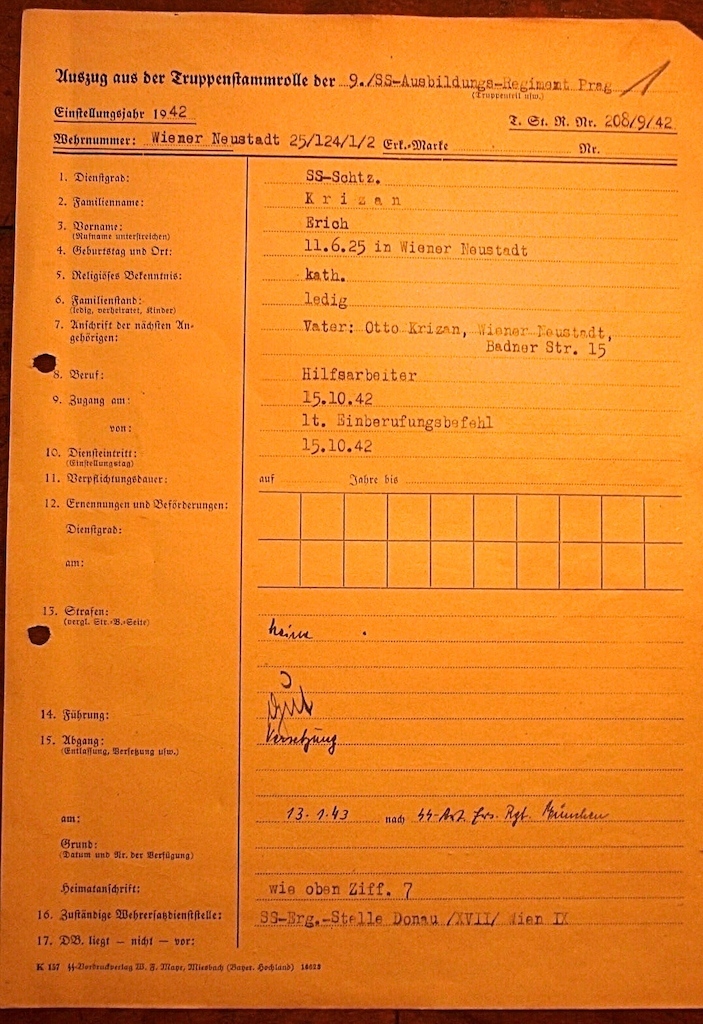 Auszug aus der Truppenstammrolle der 9./SS-Ausbildungs-Regiment Prag 1
(Truppenteil usw.)
Einstellungsjahr 1942 T. St. R. Nr. 208/9/42
Wehrnummer: Wiener Neustadt 25/124/1/2 Erk.-Marke Nr.
1. Dienstgrad: SS-Schtz.
2. Familienname: Krizan
3. Vorname: Erich
(Rufname unterstreichen)
4. Geburtstag und Ort: 11.6.25 in Wiener Neustadt
5. Religiöses Bekenntnis: kath.
6. Familienstand: ledig
(ledig, verheiratet, Kinder)
7. Anschrift der nächsten An- Vater: Otto Krizan, Wiener Neustadt,
gehörigen: Badner Str. 15
8. Beruf: Hilfsarbeiter
9. Zugang am: 15.10.42
von: lt. Einberufungsbefehl
10. Diensteintritt: 15.10.42
(Einstellungstag)
11. Verpflichtungsdauer: auf Jahre bis
12. Ernennungen und Beförderungen:
Dienstgrad:
am:
13. Strafen:
(vergl. Str.-B.-Seite)
keine
14. Führung: Gut
15. Abgang: Versetzung
(Entlassung, Versetzung usw.)
am: 13.1.43 nach SS-Art. Ers. Rgt. München
Grund:
(Datum und Nr. der Verfügung)
Heimatanschrift: wie oben Ziff. 7
16. Zuständige Wehrersatzdienststelle: SS-Erg.-Stelle Donau /XVII/ Wien IX
17. DB. liegt — nicht — vor:
K 157 SS-Vordruckverlag W. F. Mayr, Miesbach (Bayer. Hochland) 16623